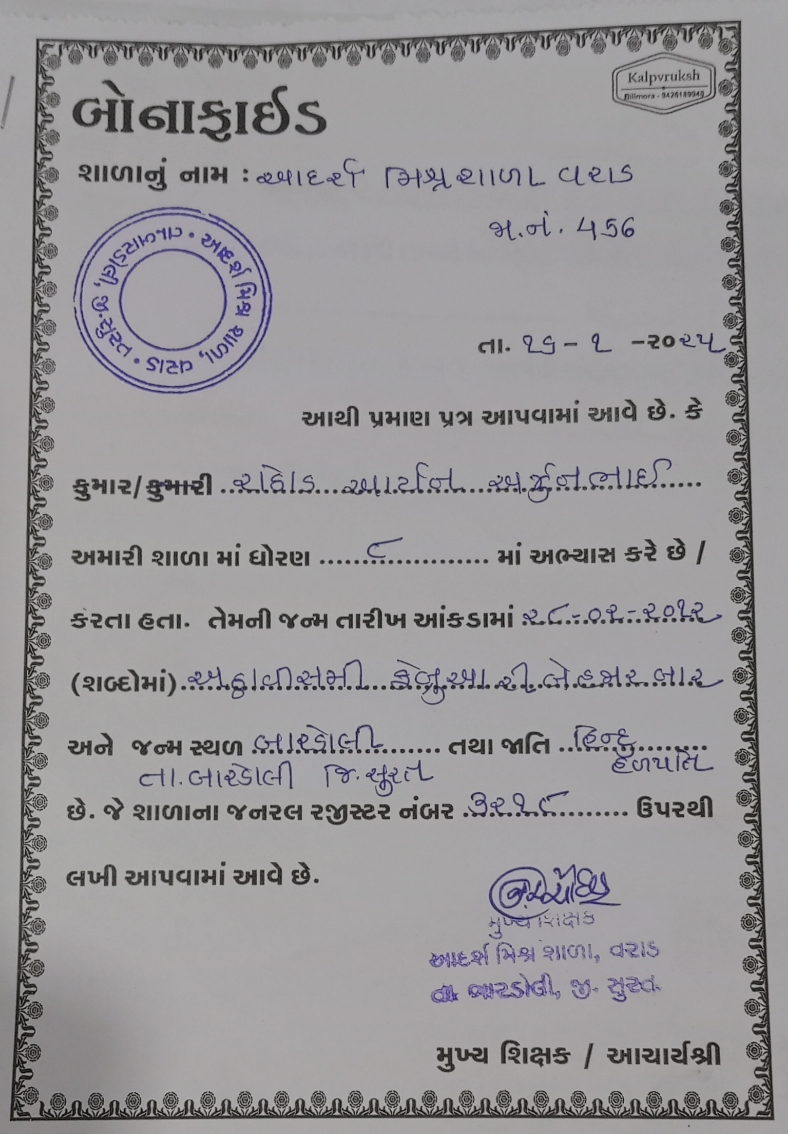 Kalpvruksh
Bilimora - 9426189949
બોનાફાઈડ
શાળાનું નામ : આદર્શ મિશ્રશાળા વરાડ
મ.નં. 456
આદર્શ મિશ્ર શાળા, વરાડ • તા.બારડોલી, જી.સુરત •
તા. ૧૬ - ૧ -૨૦૨૫
આથી પ્રમાણ પત્ર આપવામાં આવે છે. કે
કુમાર/કુમારી ..રાઠોડ આર્યન અર્જુનભાઈ
અમારી શાળા માં ધોરણ ......૮............ માં અભ્યાસ કરે છે /
કરતા હતા. તેમની જન્મ તારીખ આંકડામાં ૨૮-૦૨-૨૦૧૨
(શબ્દોમાં) ફેબ્રુઆરી બેહજાર બાર
અને જન્મ સ્થળ બારડોલી....... તથા જાતિ ..હિન્દુ
તા.બારડોલી જિ.સુરત હળપતિ
છે. જે શાળાના જનરલ રજીસ્ટર નંબર .૩૨૧૮......... ઉપરથી
લખી આપવામાં આવે છે.
મુખ્ય શિક્ષક
આદર્શ મિશ્ર શાળા, વરાડ
તા બારડોલી, જી. સુરત.
મુખ્ય શિક્ષક / આચાર્યશ્રી